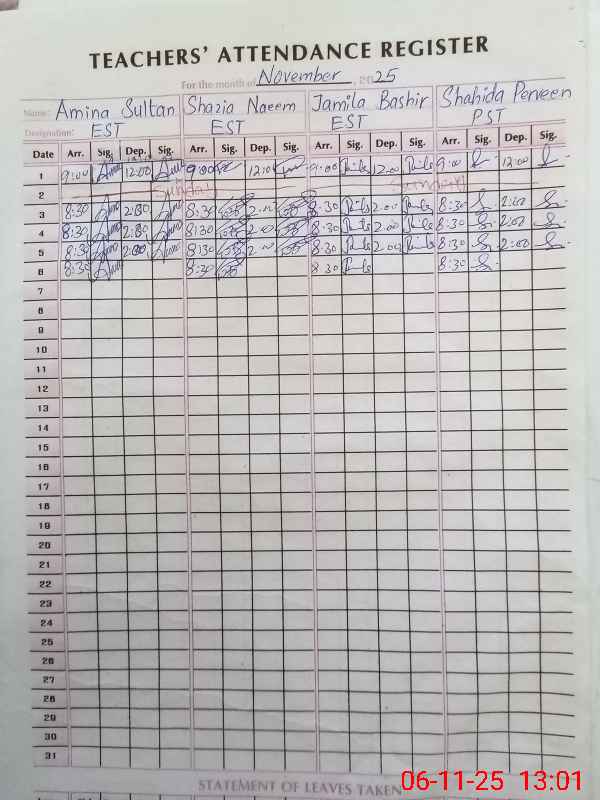 TEACHERS' ATTENDANCE REGISTER
For the month of November, 2025
Name: Amina Sultan Shazia Naeem Jamila Bashir Shahida Perveen
Designation: EST EST EST PST
Date Arr. Sig. Dep. Sig. Arr. Sig. Dep. Sig. Arr. Sig. Dep. Sig. Arr. Sig. Dep. Sig.
1 9:00 12:00 9:00 12:00 9:00 12:00 9:00 12:00
2 Sunday Sunday
3 8:30 2:00 8:30 2:00 8:30 2:00 8:30 2:00
4 8:30 2:00 8:30 2:00 8:30 2:00 8:30 2:00
5 8:30 2:00 8:30 2:00 8:30 2:00 8:30 2:00
6 8:30 8:30 8 30 8:30
7
8
9
10
11
12
13
14
15
16
17
18
19
20
21
22
23
24
25
26
27
28
29
30
31
STATEMENT OF LEAVES TAKEN
06-11-25 13:01